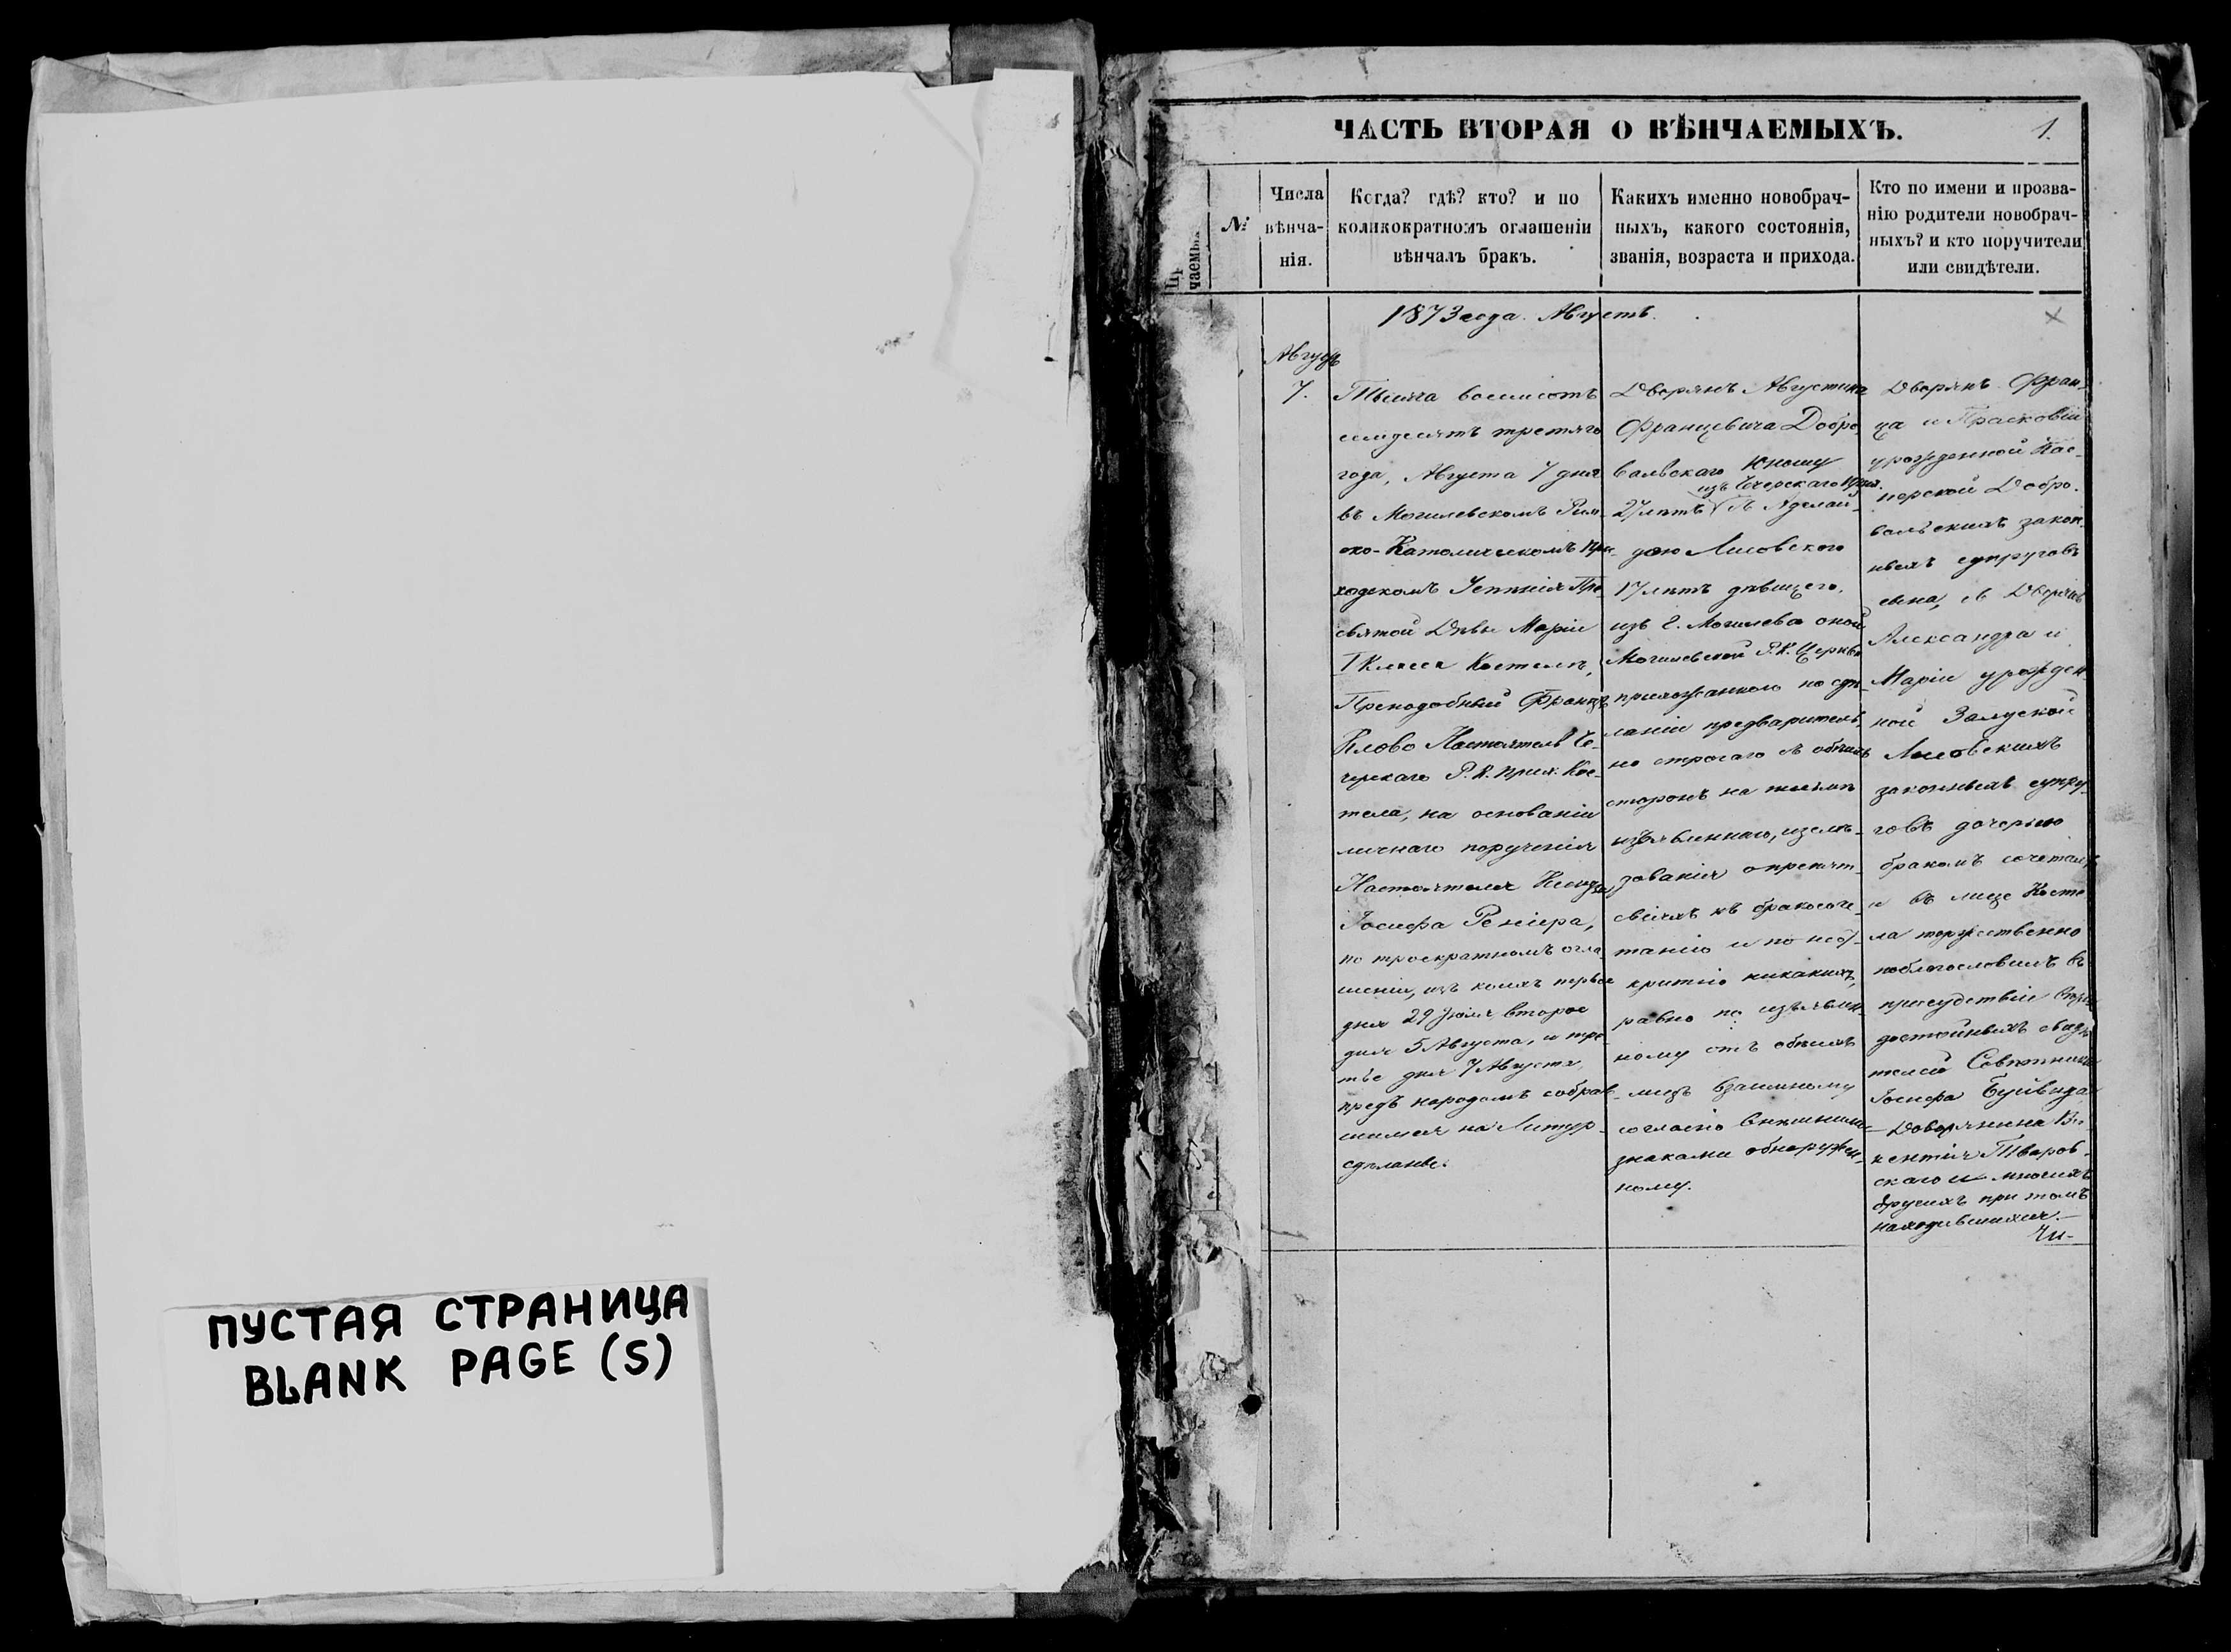 ПУСТАЯ СТРАНИЦА
BLANK PAGE (S)
ЧАСТЬ ВТОРАЯ О ВѢНЧАЕМЫХЪ.
1.
чаемых
№
Числа
вѣнча-
нія.
Когда? гдѣ? кто? и по
коликократномъ оглашеніи
вѣнчалъ бракъ.
Какихъ именно новобрач-
ныхъ, какого состоянія,
званія, возраста и прихода.
Кто по имени и прозва-
нію родители новобрач-
ныхъ? и кто поручители
или свидѣтели.
1873 года. Августъ.
Августъ
7.
Тысяча восемсотъ
семдесятъ третяго
года, Августа 7 дня
въ Могилевскомъ Рим-
ско-Католическомъ При-
ходскомъ Успѣнія Пре-
святой Дѣвы Маріи
I Класса Костелѣ,
Преподобный Францъ
Клово Настоятель Че-
черскаго Р. К. Прих. Кос-
тела, на основаніи
личнаго порученія
Настоятеля Ксендза
Іосифа Реніера,
по троекратномъ огла-
шеніи, изъ коихъ первое
дня 29 Іюля, второе
дня 5 Августа, и тре-
тье дня 7 Августа,
предъ народомъ собрав-
шимся на Литур-
сдѣланъ.
Дворянъ Августина
Францевича Добро-
вольскаго Юношу
изъ Чечерскаго прих.
27 лѣтъ съ Аделаи-
дою Лисовского
17 лѣтъ дѣвицею,
изъ г. Могилева оной
Могилевской Р. К. Церкви
прихожанкою по сдѣ-
ланіи предваритель-
но строгаго съ обѣихъ
сторонъ на письмѣ
изъявленнаго, изслѣ-
дованія о препятст-
свіяхъ къ бракосоче-
танію и по неот-
крытію никакихъ,
равно по изъявлен-
ному отъ обѣихъ
лицъ взаимному
согласію внѣшними
знаками обнаружен-
ному.
Дворянъ Фран-
ца и Прасковіи
урожденной Кас-
перской Добро-
вольскихъ закон-
ныхъ супруговъ
сына, съ Дворянъ
Александра и
Маріи урожден-
ной Залуской
Лисовскихъ
законныхъ супру-
говъ дочерью
бракомъ сочеталъ
и въ лице Косте-
ла торжественно
поблагословилъ въ
присудствіи вѣро-
достойныхъ свидѣ-
телей Совѣтника
Іосифа Буйвида
Доворянина Ви-
кентія Тваров-
скаго и многихъ
другихъ при томъ
находившихся.